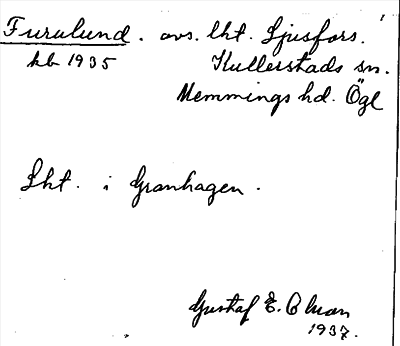 Furulund. avs. lht. Ljusfors.
kb 1935 Kullerstads sn.
Memmings hd. Ögl
Lht. i Granhagen.
Gustaf E. Olman
1937.